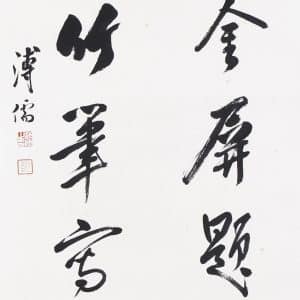 金屏題
竹筆寫
溥儒